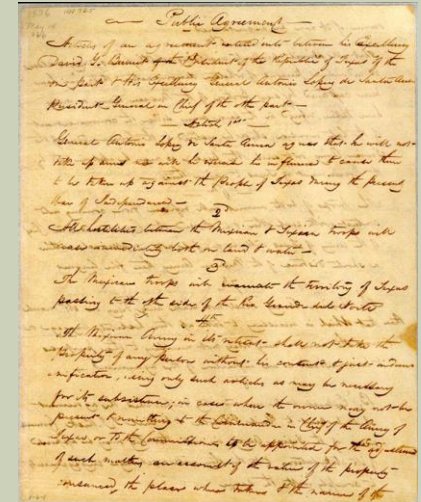 Public Agreement
Articles of an agreement entered into between his Excellency
David G. Burnet of the President of the Republic of Texas of the
one part & His Excellency General Antonio Lopez de Santa Anna
President General in Chief of the oth part —
Article 1st
General Antonio Lopez de Santa Anna agrees that he will not
take up arms nor will he his influence to cause them
to be taken up against the People of Texas during the present
War of Independence —
2d
All hostilities between the Mexican & Texan troops will
cease immediately both on land & water —
3d
The Mexican troops will evacuate the Territory of Texas
passing to the oth side of the Rio Grande del Norte
4th
The Mexican Army in its retreat shall not take the
property of any person without his consent & just indem-
nification, using only such articles as may be necessary
for its subsistence, in cases where the owner may not be
present & remitting to the Commander in Chief of the Army of
Texas or to the Commissioners to be appointed for the adjustment
of such matters an account of the value of the property
consumed, the place where taken & the name of the